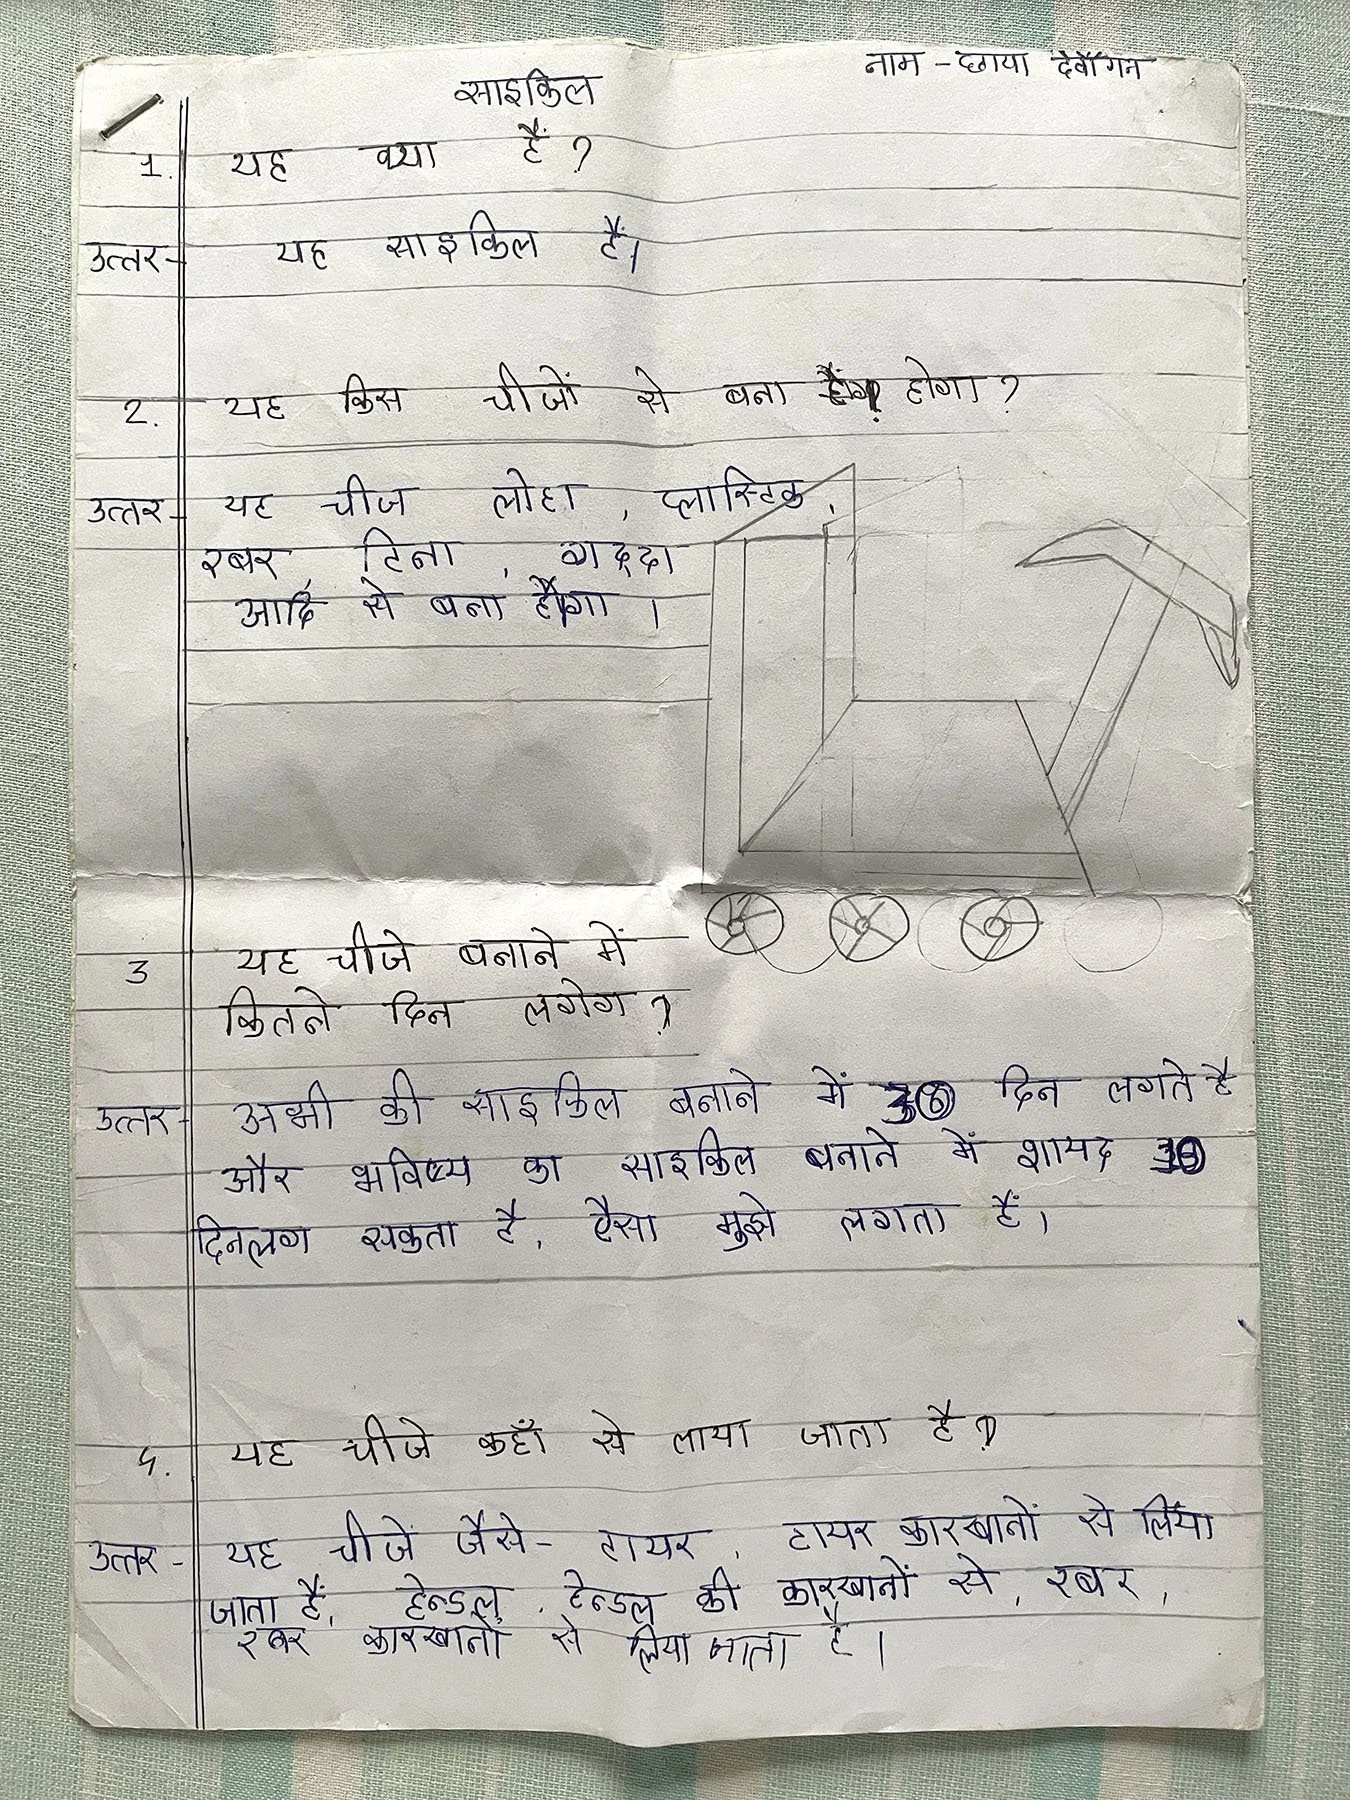 नाम - छाया देवाँगन
साइकिल
1. यह क्या हैं ?
उत्तर - यह साइकिल हैं।
2. यह किस चीजों से बना होगा ?
उत्तर - यह चीज लोहा , प्लास्टिक ,
रबर , टिना , गद्दा
आदि से बना होगा ।
3 यह चीजे बनाने में
कितने दिन लगेग ?
उत्तर - अभी की साइकिल बनाने में 30 दिन लगते है
और भविष्य का साइकिल बनाने में शायद 10
दिन लग सकता है , ऐसा मुझे लगता हैं ।
4. यह चीजे कहाँ से लाया जाता है ?
उत्तर - यह चीजें जैसे - टायर , टायर कारखानों से लिया
जाता हैं , हेन्डल , हेन्डल की कारखानों से , रबर ,
रबर कारखानों से लिया जाता है ।